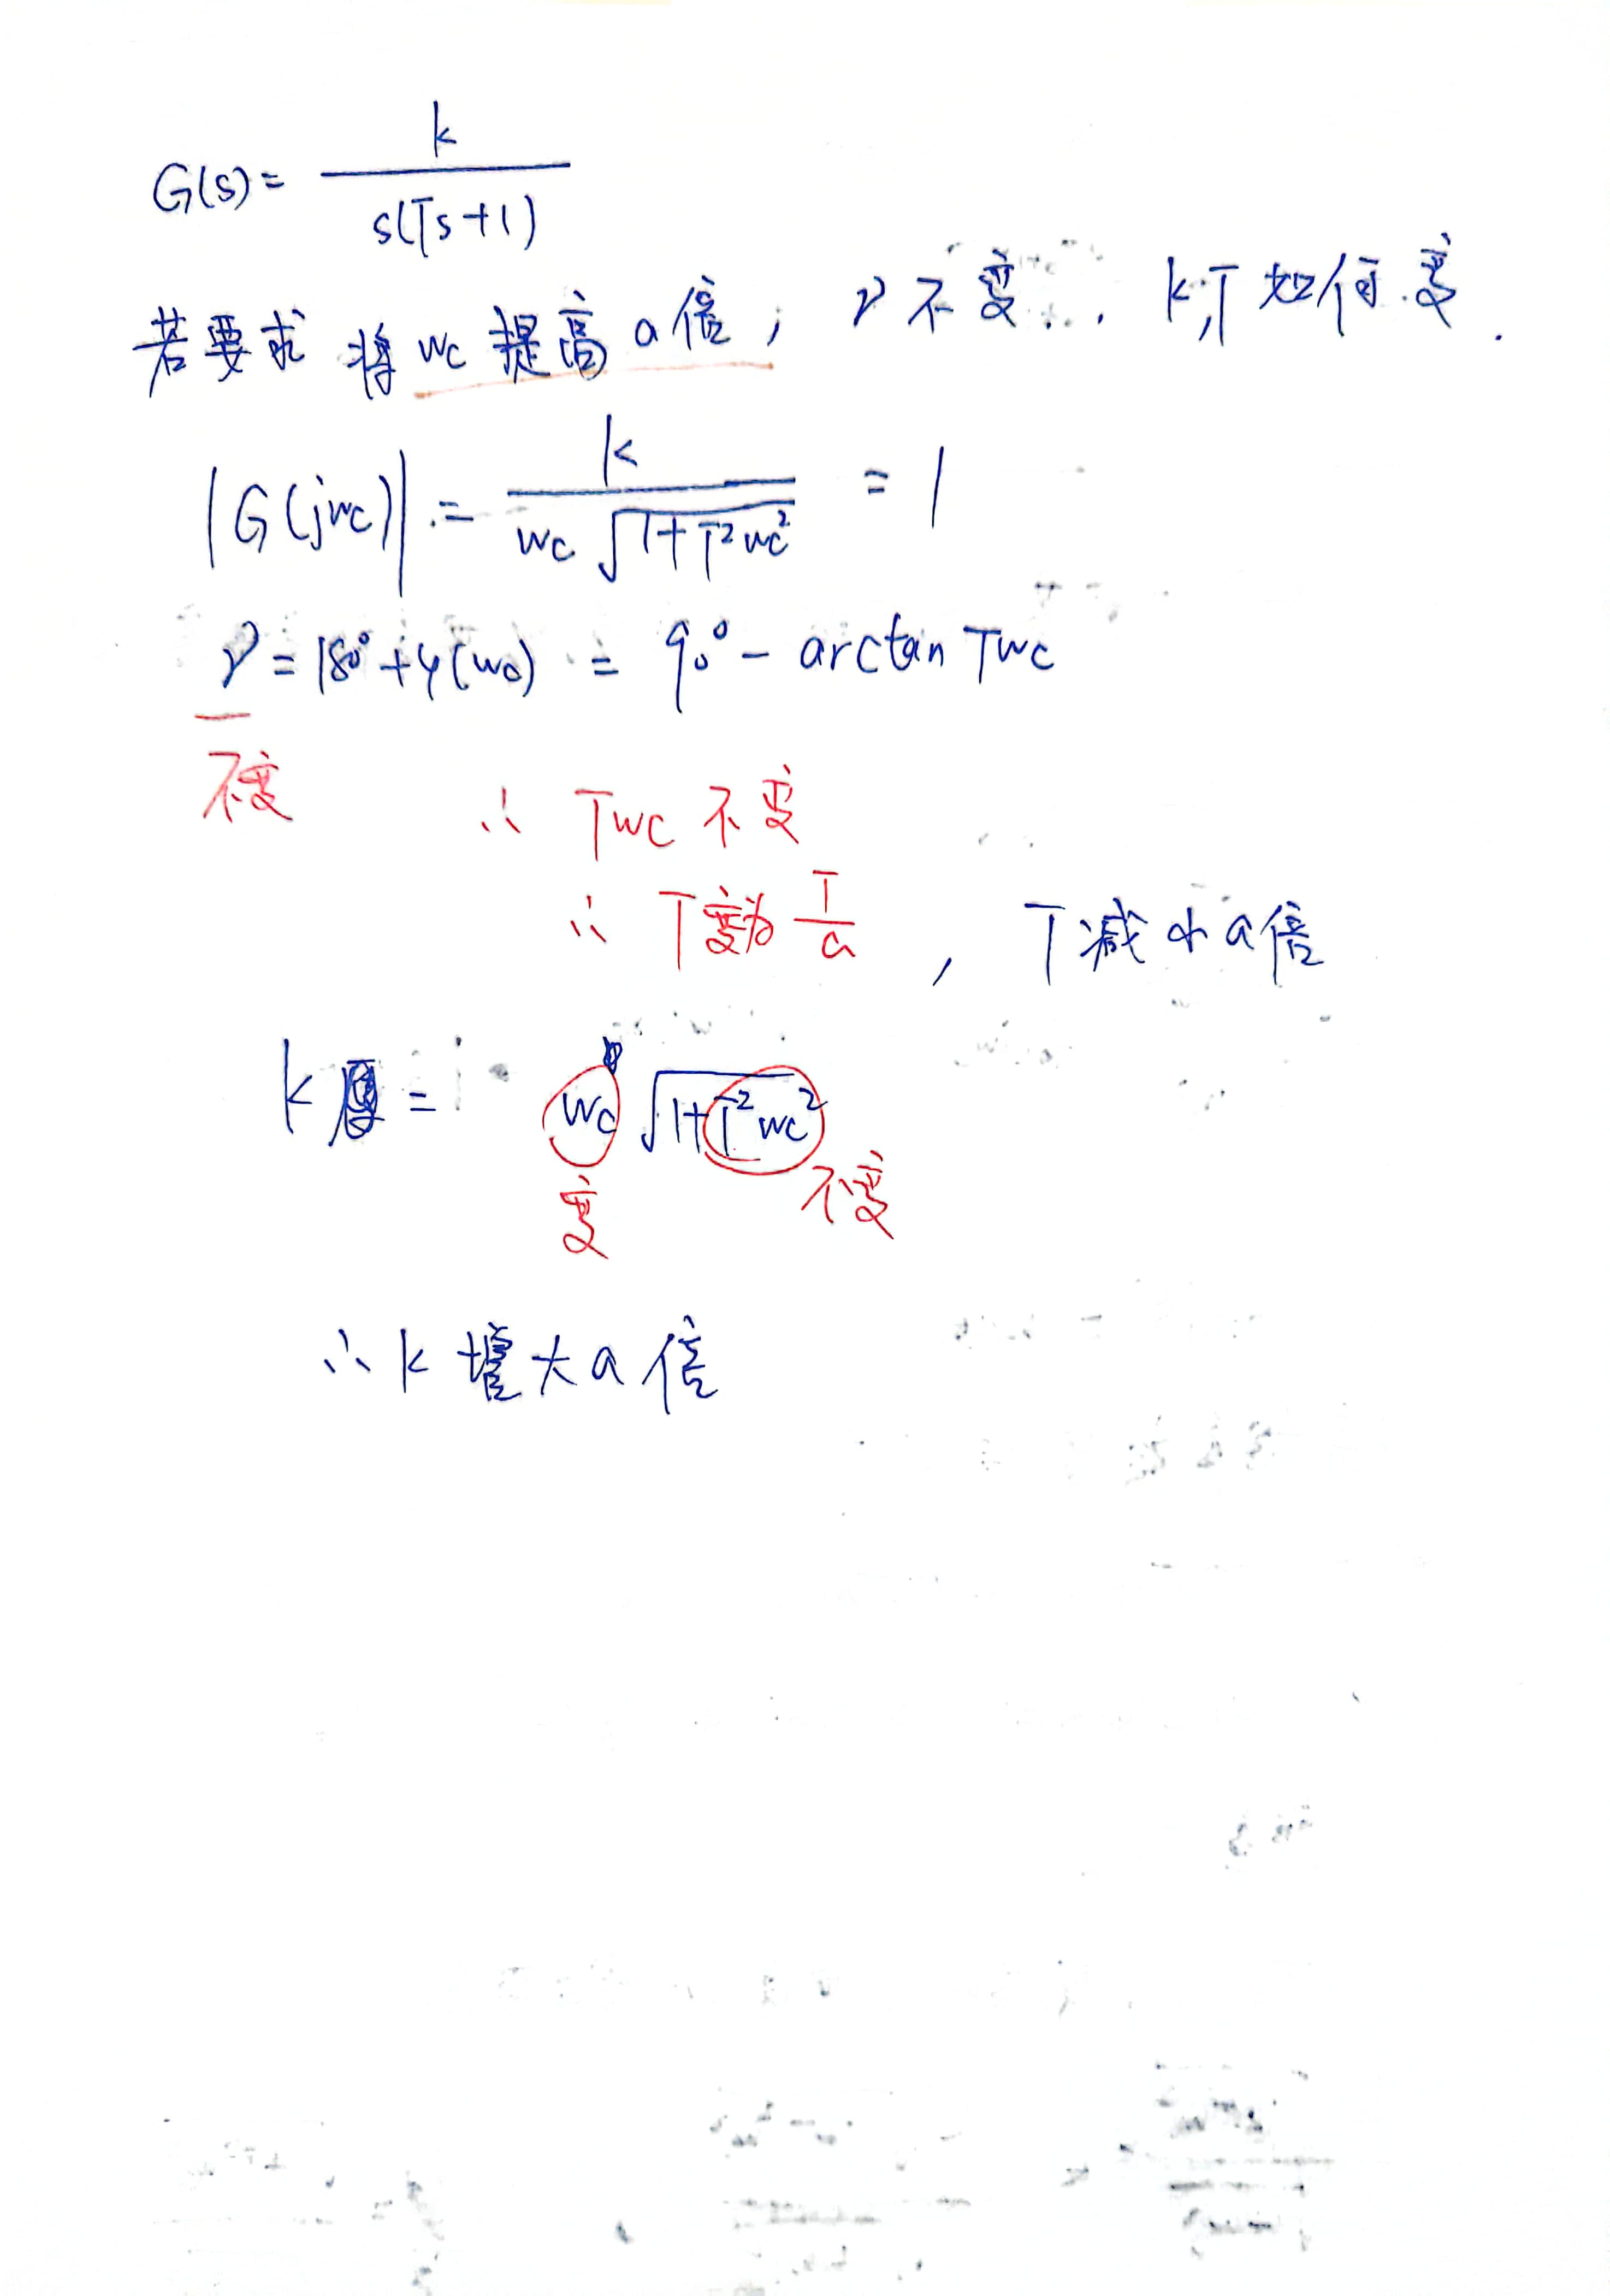 G(s) = k / s(Ts+1)
若要求将wc提高a倍, γ不变, k,T如何变.
|G(jwc)| = k / wc√(1+T²wc²) = 1
γ = 180°+φ(wc) = 90° - arctan Twc
不变 ∴ Twc 不变
∴ T变为 T/a , T减小a倍
k = wc √(1+T²wc²)
变 不变
∴ k 增大a倍